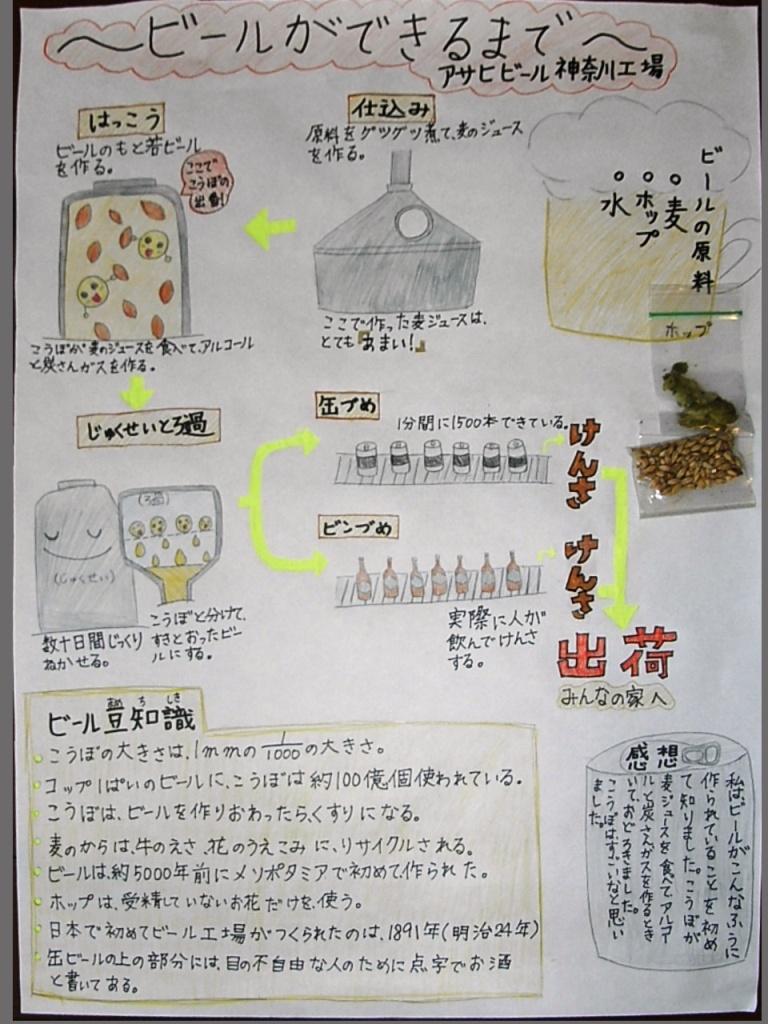 〜ビールができるまで〜
アサヒビール神奈川工場
ビールの原料
。麦
。ホップ
。水
ホップ
仕込み
原料をグツグツ煮て、麦のジュース
を作る。
ここで作った麦ジュースは、
とても『あまい!』
はっこう
ビールのもと若ビール
を作る。
ここで
こうぼの
出番!
こうぼが麦のジュースを食べて、アルコール
と炭さんガスを作る。
じゅくせいとろ過
(じゅくせい)
(ろ過)
数十日間じっくり
ねかせる。
こうぼと分けて、
すきとおったビー
ルにする。
缶づめ
1分間に1500本できている。
けんさ
ビンづめ
けんさ
実際に人が
飲んでけんさ
する。
出荷
みんなの家へ
ビール豆知識
まめ ち しき
こうぼの大きさは、1mmの1/1000の大きさ。
コップ1ぱいのビールに、こうぼは約100億個使われている。
こうぼは、ビールを作りおわったら、くすりになる。
麦のからは、牛のえさ、花のうえこみに、リサイクルされる。
ビールは、約5000年前にメソポタミアで初めて作られた。
ホップは、受精していないお花だけを使う。
日本で初めてビール工場がつくられたのは、1891年(明治24年)
缶ビールの上の部分には、目の不自由な人のために点字でお酒
と書いてある。
感想
私は、ビールがこんなふうに
作られていることを初め
て知りました。こうぼが
麦ジュースを食べてアルコー
ルと炭さんガスを作るとき
いて、おどろきました。
こうぼはすごいなと思い
ました。